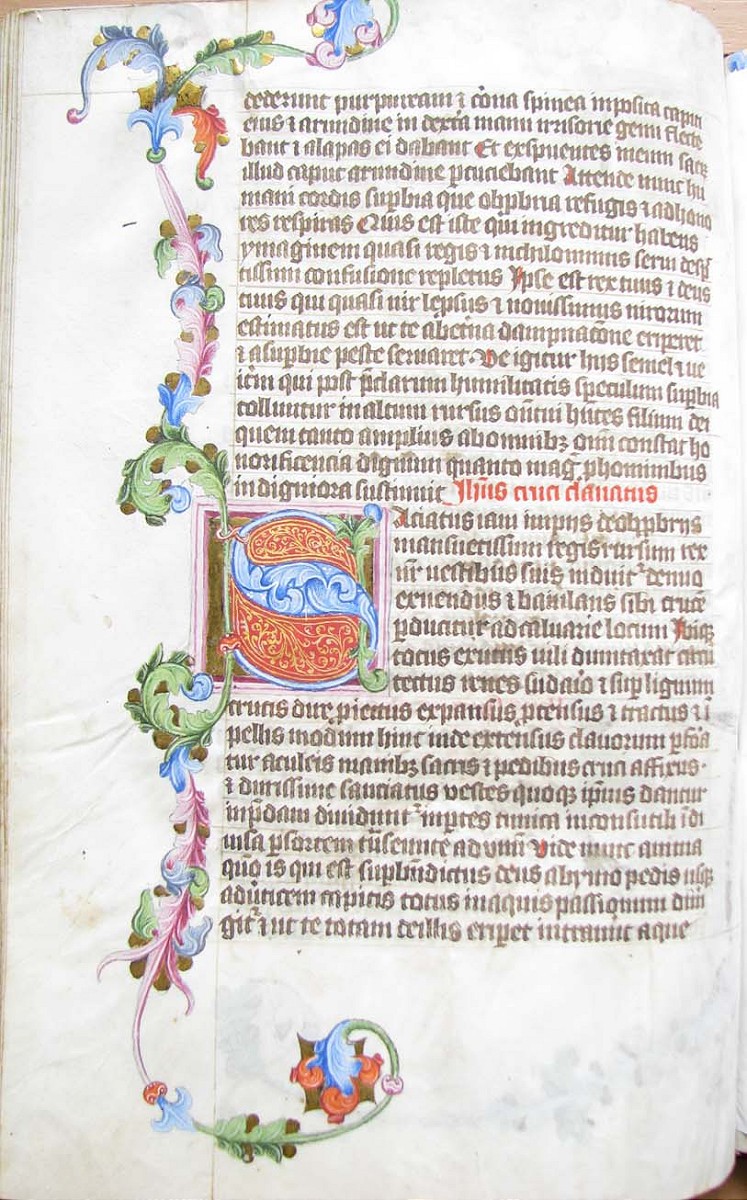 dederunt purpuream ⁊ cōna spinea inposita capiti
eius ⁊ arundine in dextra manu irrisorie genu flecte
bant ⁊ alapas ei dabant Et exspuentes meum sacrꝝ
illud caput arundine ꝑcuciebant Attende nunc hu
mani cordis suꝑbia que obꝓbria refugis ⁊ ad hono
res respiras Quis est iste qui ingreditur habens
ymaginem quasi regis ⁊ nichilominus serui despc̄
tissimi confusione repletus Ipse est rex tuus ⁊ deus
tuus qui quasi uir lepsus ⁊ nouissimus uirorum
estimatus est ut te ab et̄na dampnacōne eriperet
⁊ a suꝑbie peste seruaret Ve igitur hijs semel ⁊ ue
it̄m qui post p̄clarum humilitatis speculum suꝑbia
tolluntur in altum rursus on̄tui hn̄tes filium dei
quem tanto amplius ab omnibꝫ om̄i constat ho
norificencia dignum quanto maḡ ꝓ hominibus
indigniora sustinuit Jhūs cruci clauatus
Saciatis iam impijs de obꝓbrijs
mansuetissimi regis rursum rex
nr̄ uestibus suis induitᷣ denuo
exuendus ⁊ baiulans sibi crucē
ꝑducitur ad caluarie locum Ibiqꝫ
totus exutus uili dumtaxat circū
tectus renes sudario ⁊ suꝑ lignum
crucis dure piectus expansus ꝓtensus ⁊ tractus ⁊ ī
pellis modum hinc inde extensus clauorum ꝑfora
tur aculeis manibꝫ sacris ⁊ pedibus cruci affixus
⁊ durissime sauciatus vestes quoqꝫ ip̄ius dantur
in p̄dam diuidunt᷑ in ꝑtes tunica inconsutili īdi
uisa ꝑ sortem tn̄ seruite ad unū Vide nunc anima
quō is qui est suꝑ bn̄dictus deus ab ymo pedis usqꝫ
ad ūticem capitis totus in aquis passionum dim̄
git᷑ ⁊ ut te totam de illis eriꝑet intrauit aque